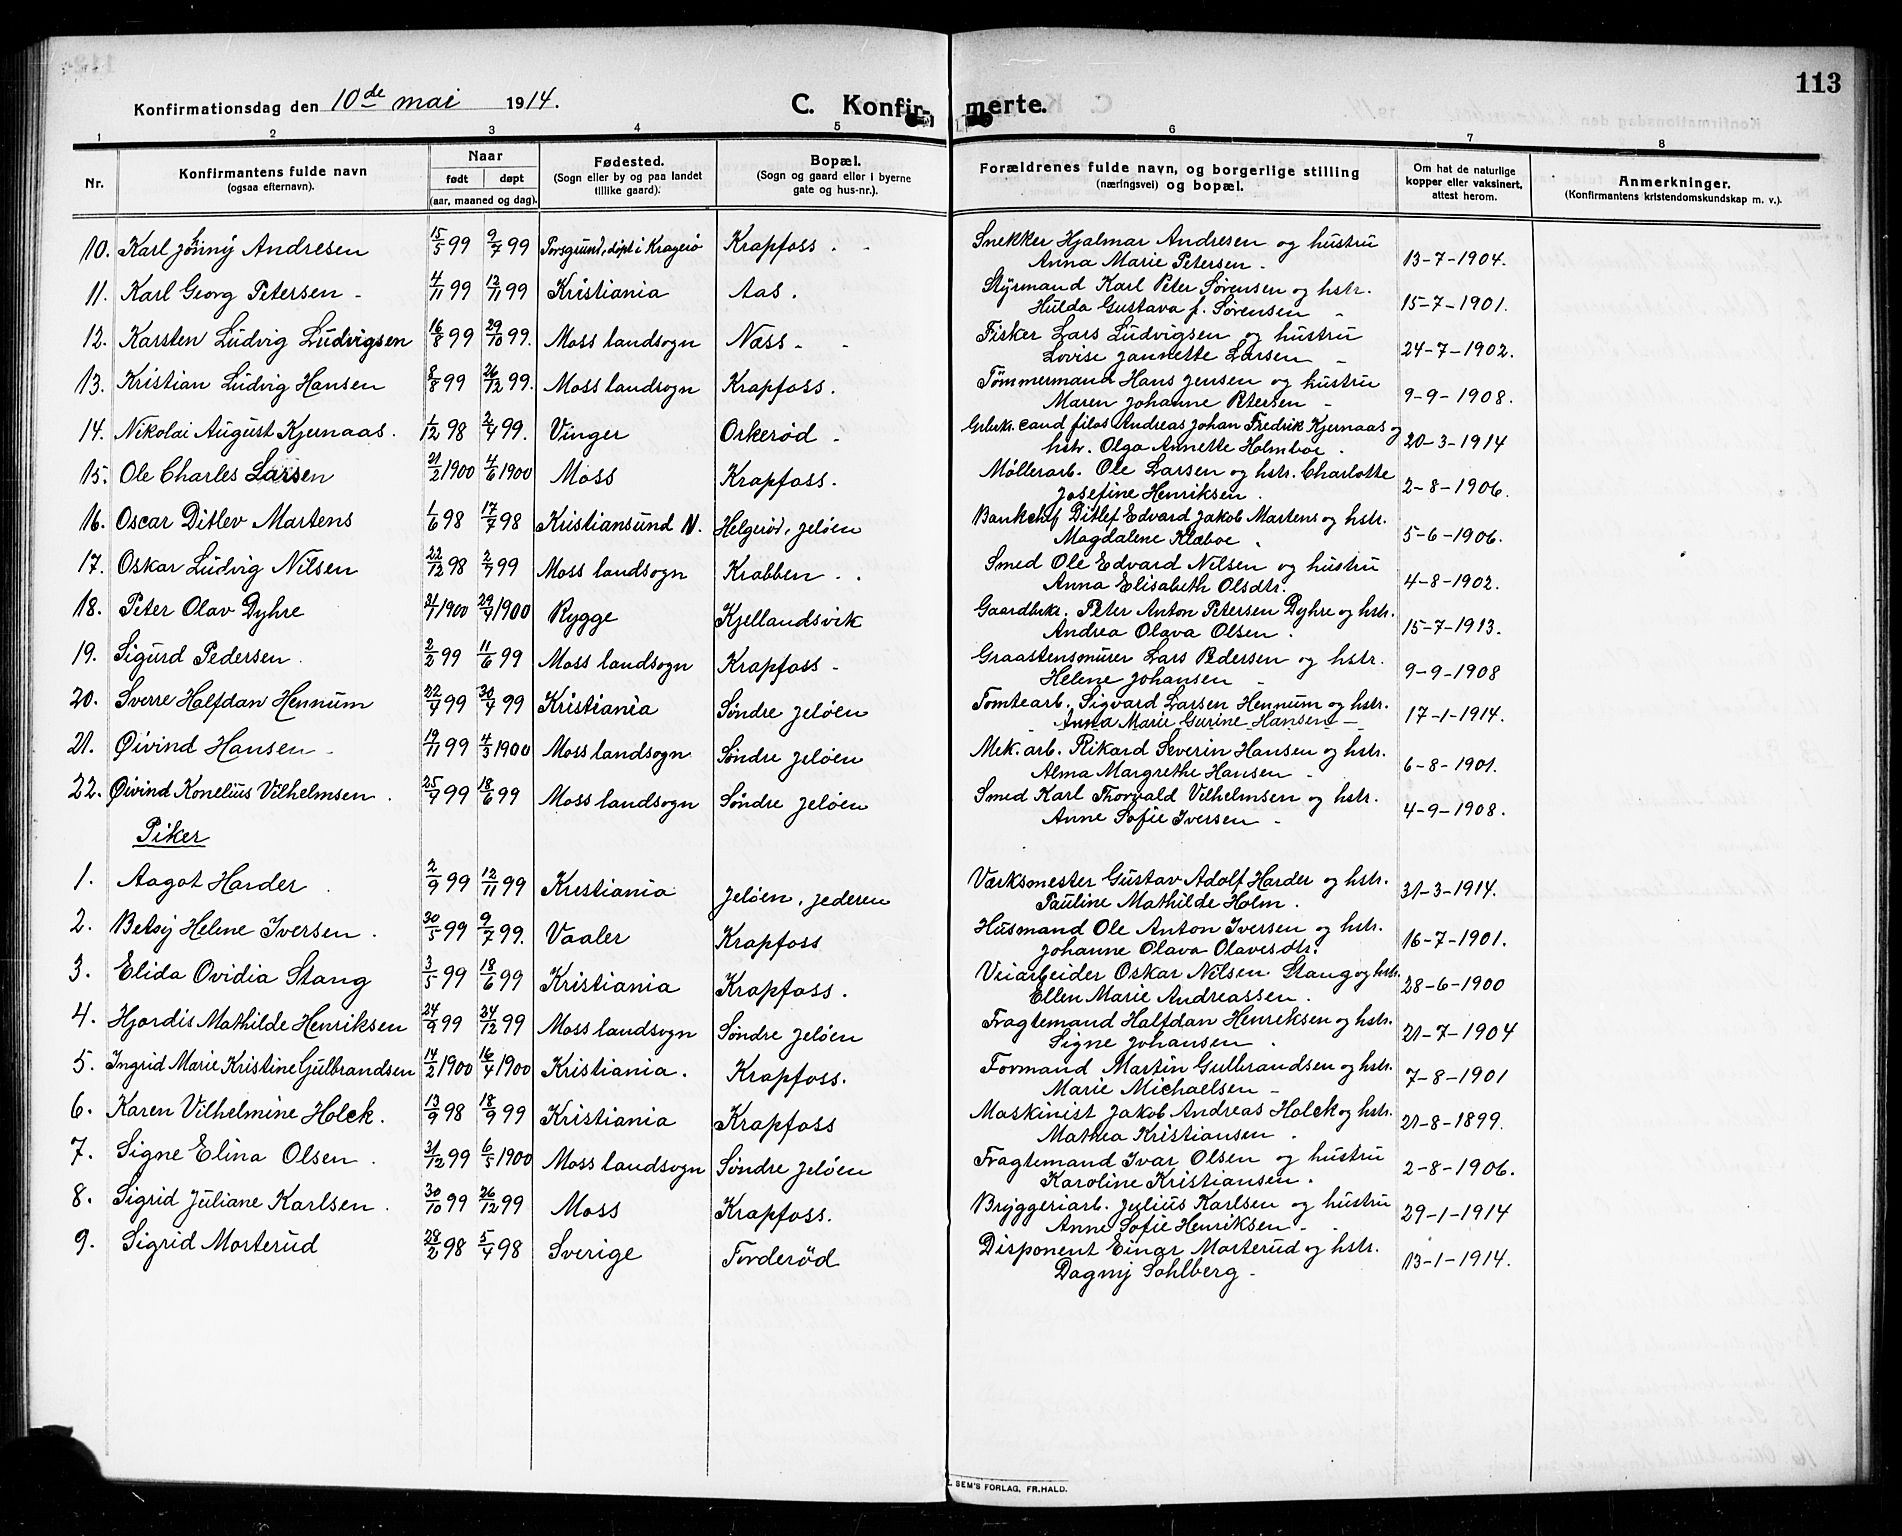 113
Konfirmationsdag den 10de mai 1914.
C. Konfir- merte.
1 2 3 4 5 6 7 8
Nr.
Konfirmantens fulde navn
(ogsaa efternavn).
Naar
født døpt
(aar, maaned og dag).
Fødested.
(Sogn eller by og paa landet
tillike gaard).
Bopæl.
(Sogn og gaard eller i byerne
gate og hus-nr.).
Forældrenes fulde navn, og borgerlige stilling
(næringsvei) og bopæl.
Om hat de naturlige
kopper eller vaksinert,
attest herom.
Anmerkninger.
(Konfirmantens kristendomskundskap m. v.).
10. Karl Johnny Andresen 15/5 99 9/7 99 Porsgrund, døpt i Kragerø Krapfoss. Snekker Hjalmar Andresen og hustru
Anna Marie Petersen. 13-7-1904.
11. Karl Georg Petersen 4/11 99 13/11 99 Kristiania Aas. Styrmand Karl Peter Sørensen og hstr.
Hulda Gustava f. Sørensen 15-7-1901.
12. Karsten Ludvig Ludvigsen 16/8 99 29/10 99. Moss landsogn Næss Fisker Lars Ludvigsen og hustru
Lovise Jannette Larsen 24-7-1902.
13. Kristian Ludvig Hansen 8/8 99 26/12 99. Moss landsogn Krapfoss. Tømmermand Hans Jensen og hustru
Maren Johanne Petersen 9-9-1908.
14. Nikolai August Kjernaas. 1/12 98 2/4 99. Vinger Orkerød cand filos Andreas Johan Fredrik Kjernaas og
hstr. Olga Annette Holmboe. 20-3-1914
15. Ole Charles Larsen 21/2 1900 4/6 1900 Moss Krapfoss. Møllerarb. Ole Larsen og hstr. Charlotte
Josefine Henriksen. 2-8-1906.
16. Oscar Ditlev Martens 1/6 98 17/7 98 Kristiansund N. Helgerød, Jeløen Bankchef Ditlef Edvard Jakob Martens og hstr.
Magdalene Klæboe. 5-6-1906.
17. Oskar Ludvig Nilsen 22/12 98 2/7 99 Moss landsogn Krabben Smed Ole Edvard Nilsen og hustru
Anna Elisabeth Olsdtr. 4-8-1902.
18. Peter Olav Dyhre 21/1 1900 29/4 1900 Rygge Kjellandsvik Gaardbrk. Peter Anton Petersen Dyhre og hstr.
Andrea Olava Olsen. 15-7-1913.
19. Sigurd Pedersen. 2/2 99 11/6 99 Moss landsogn Krapfoss Graastensmurer Lars Pedersen og hstr.
Helene Johansen 9-9-1908
20. Sverre Halfdan Hennum 22/4 99 30/4 99 Kristiania Søndre Jeløen Tomtearb. Sigvard Larsen Hennum og hstr.
Anna Marie Gurine Hansen 17-1-1914.
21. Øivind Hansen 19/11 99 4/3 1900 Moss landsogn Søndre Jeløen Mek. arb. Rikard Severin Hansen og hstr.
Alma Margrethe Hansen 6-8-1901.
22. Øivind Konelius Vilhelmsen. 25/4 99 18/6 99 Moss landsogn Søndre Jeløen Smed Karl Thorvald Vilhelmsen og hstr.
Anne Sofie Iversen 4-9-1908.
Piker
1. Aagot Harder. 2/9 99 12/11 99 Kristiania Jeløen, Jederen Værksmester Gustav Adolf Harder og hstr.
Pauline Mathilde Holm. 31-3-1914.
2. Betsy Helene Iversen. 30/5 99 9/7 99. Vaaler Krapfoss Husmand Ole Anton Iversen og hstr.
Johanne Olava Olavesdtr. 16-7-1901.
3. Elida Ovidia Stang 3/5 99 18/6 99 Kristiania Krapfoss. Veiarbeider Oskar Nilsen Stang og hstr.
Ellen Marie Andreassen. 28-6-1900
4. Hjørdis Mathilde Henriksen 24/9 99 24/12 99 Moss landsogn Søndre Jeløen Fragtemand Halfdan Henriksen og hstr.
Signe Johansen. 21-7-1904
5. Ingrid Marie Kristine Gulbrandsen 14/2 1900 16/4 1900 Kristiania. Krapfoss. Formand Martin Gulbrandsen og hstr.
Marie Michaelsen 7-8-1901
6. Karen Vilhelmine Holck. 13/9 98 18/9 99 Kristiania Krapfoss Maskinist Jakob Andreas Holck og hstr.
Mathea Kristiansen. 21-8-1899.
7. Signe Elina Olsen. 31/12 99 6/5 1900 Moss landsogn Søndre Jeløen Fragtemand Ivar Olsen og hustru
Karoline Kristiansen. 2-8-1906.
8. Sigrid Juliane Karlsen. 30/10 99 26/12 99 Moss Krapfoss. Bryggeriarb. Julius Karlsen og hustru
Anne Sofie Henriksen 29-1-1914
9. Sigrid Morterud 28/2 98 5/4 98 Sverige Torderød Disponent Einar Morterud og hstr.
Dagny Sohlberg 13-1-1914.
SEM'S FORLAG, FR.HALD.